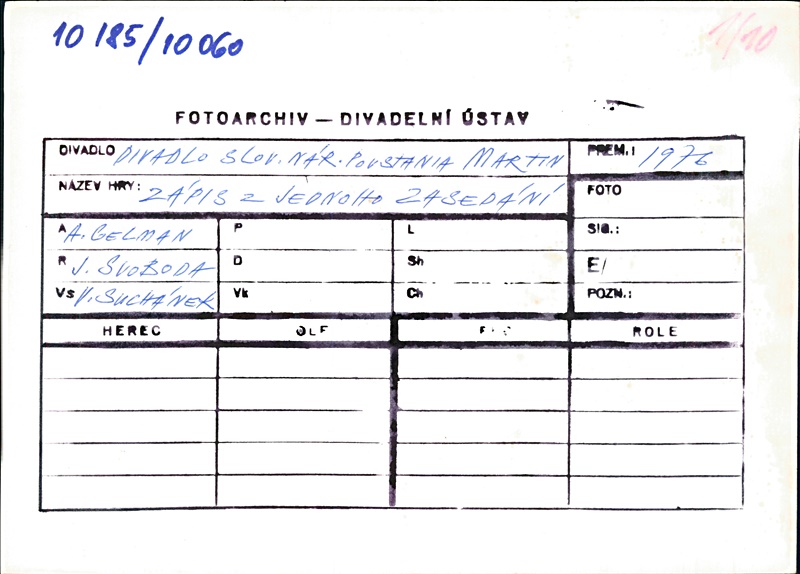 10 185/10 060
1/10
FOTOARCHIV — DIVADELNÍ ÚSTAV
DIVADLO DIVADLO SLOV. NÁR. POVSTANIA MARTIN
PREM.: 1976
NÁZEV HRY: ZÁPIS Z JEDNOHO ZASEDÁNÍ
FOTO
A A. GELMAN P L SIG.:
R J. SVOBODA D Sh E/
Vs V. SUCHÁNEK Vk Ch POZN.:
HEREC ROLE